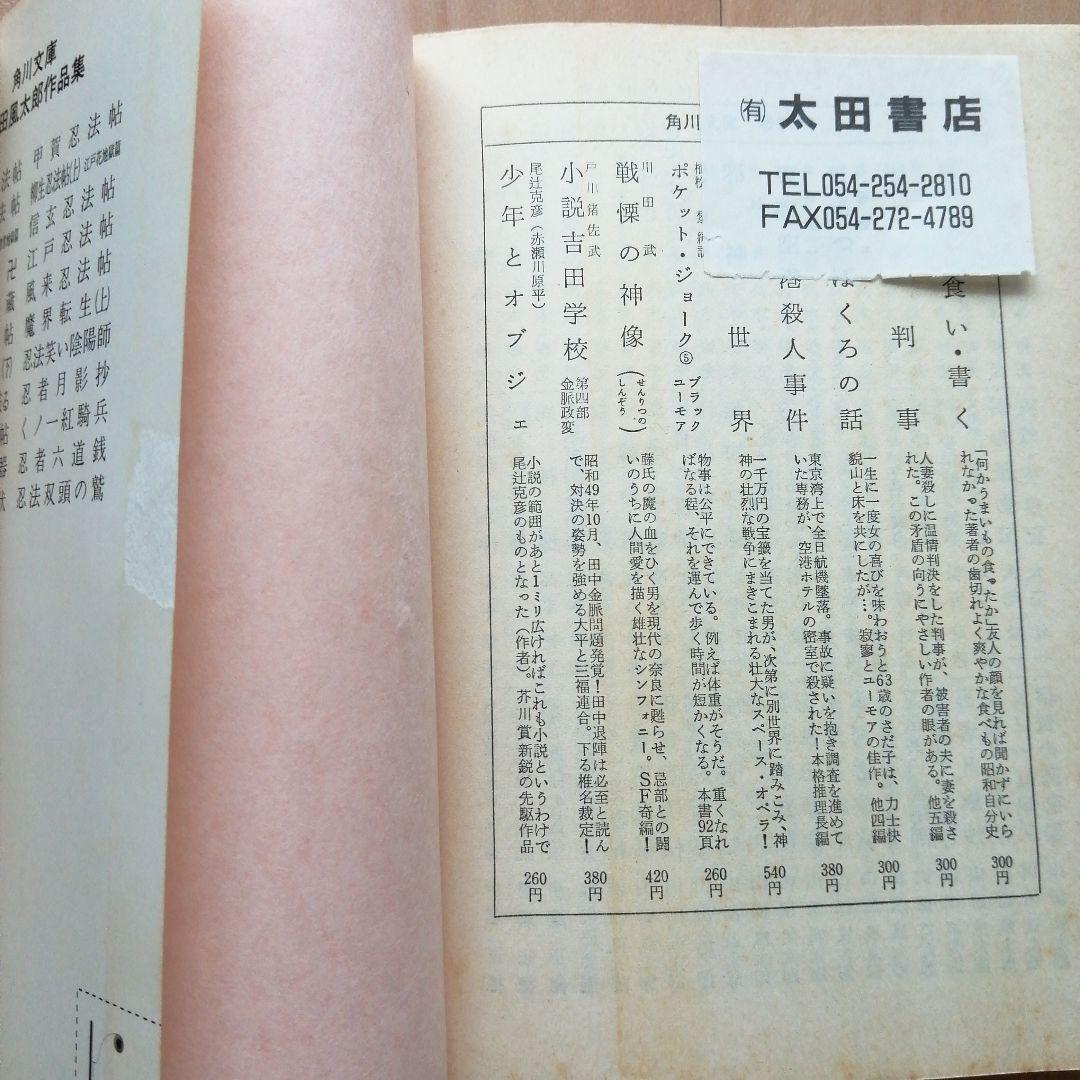 角川文庫
田風太郎作品集
甲賀忍法帖
法帖 柳生忍法帖(上) 江戸花地獄篇
帖 信玄忍法帖
江戸忍法帖
卍 風来忍法帖
蔵 魔界転生(上)
帖 忍法笑い陰陽師
(下) 忍者月影抄
る くノ一紅騎兵
帖 忍者六道銭
忍法双頭の鷲
㈲ 太田書店
TEL054-254-2810
FAX054-272-4789
角川
食い・書く
「何かうまいもの食ったか」友人の顔を見れば聞かずにいら
れたかった著者の歯切れよく爽やかな食べもの昭和自分史
300円
判事
人妻殺しに温情判決をした判事が、被害者の夫に妻を殺さ
れた。この矛盾の向うにやさしい作者の眼がある。他五編
300円
ほくろの話
一生に一度女の喜びを味わおうと63歳のさだ子は、力士快
貌山と床を共にしたが…。寂寥とユーモアの佳作。他四編
300円
港殺人事件
東京湾上で全日航機墜落。事故に疑いを抱き調査を進めて
いた専務が、空港ホテルの密室で殺された!本格推理長編
380円
世界
一千万円の宝籤を当てた男が、次第に別世界に踏みこみ、神
神の壮烈な戦争にまきこまれる壮大なスペース・オペラ!
540円
ポケット・ジョーク⑤ ブラックユーモア
物事は公平にできている。例えば体重がそうだ。重くなれ
ばなる程、それを運んで歩く時間が短かくなる。本書92頁
260円
川田武
戦慄の神像 (せんりつのしんぞう)
藤氏の魔の血をひく男を現代の奈良に甦らせ、忌部との闘
いのうちに人間愛を描く雄壮なシンフォニー。SF奇編!
420円
戸川猪佐武
小説吉田学校 第四部 金脈政変
昭和49年10月、田中金脈問題発覚!田中退陣は必至と読ん
で、対決の姿勢を強める大平と三福連合。下る椎名裁定!
380円
尾辻克彦(赤瀬川原平)
少年とオブジェ
小説の範囲があと1ミリ広ければこれも小説というわけで
尾辻克彦のものとなった(作者)。芥川賞新鋭の先駆作品
260円